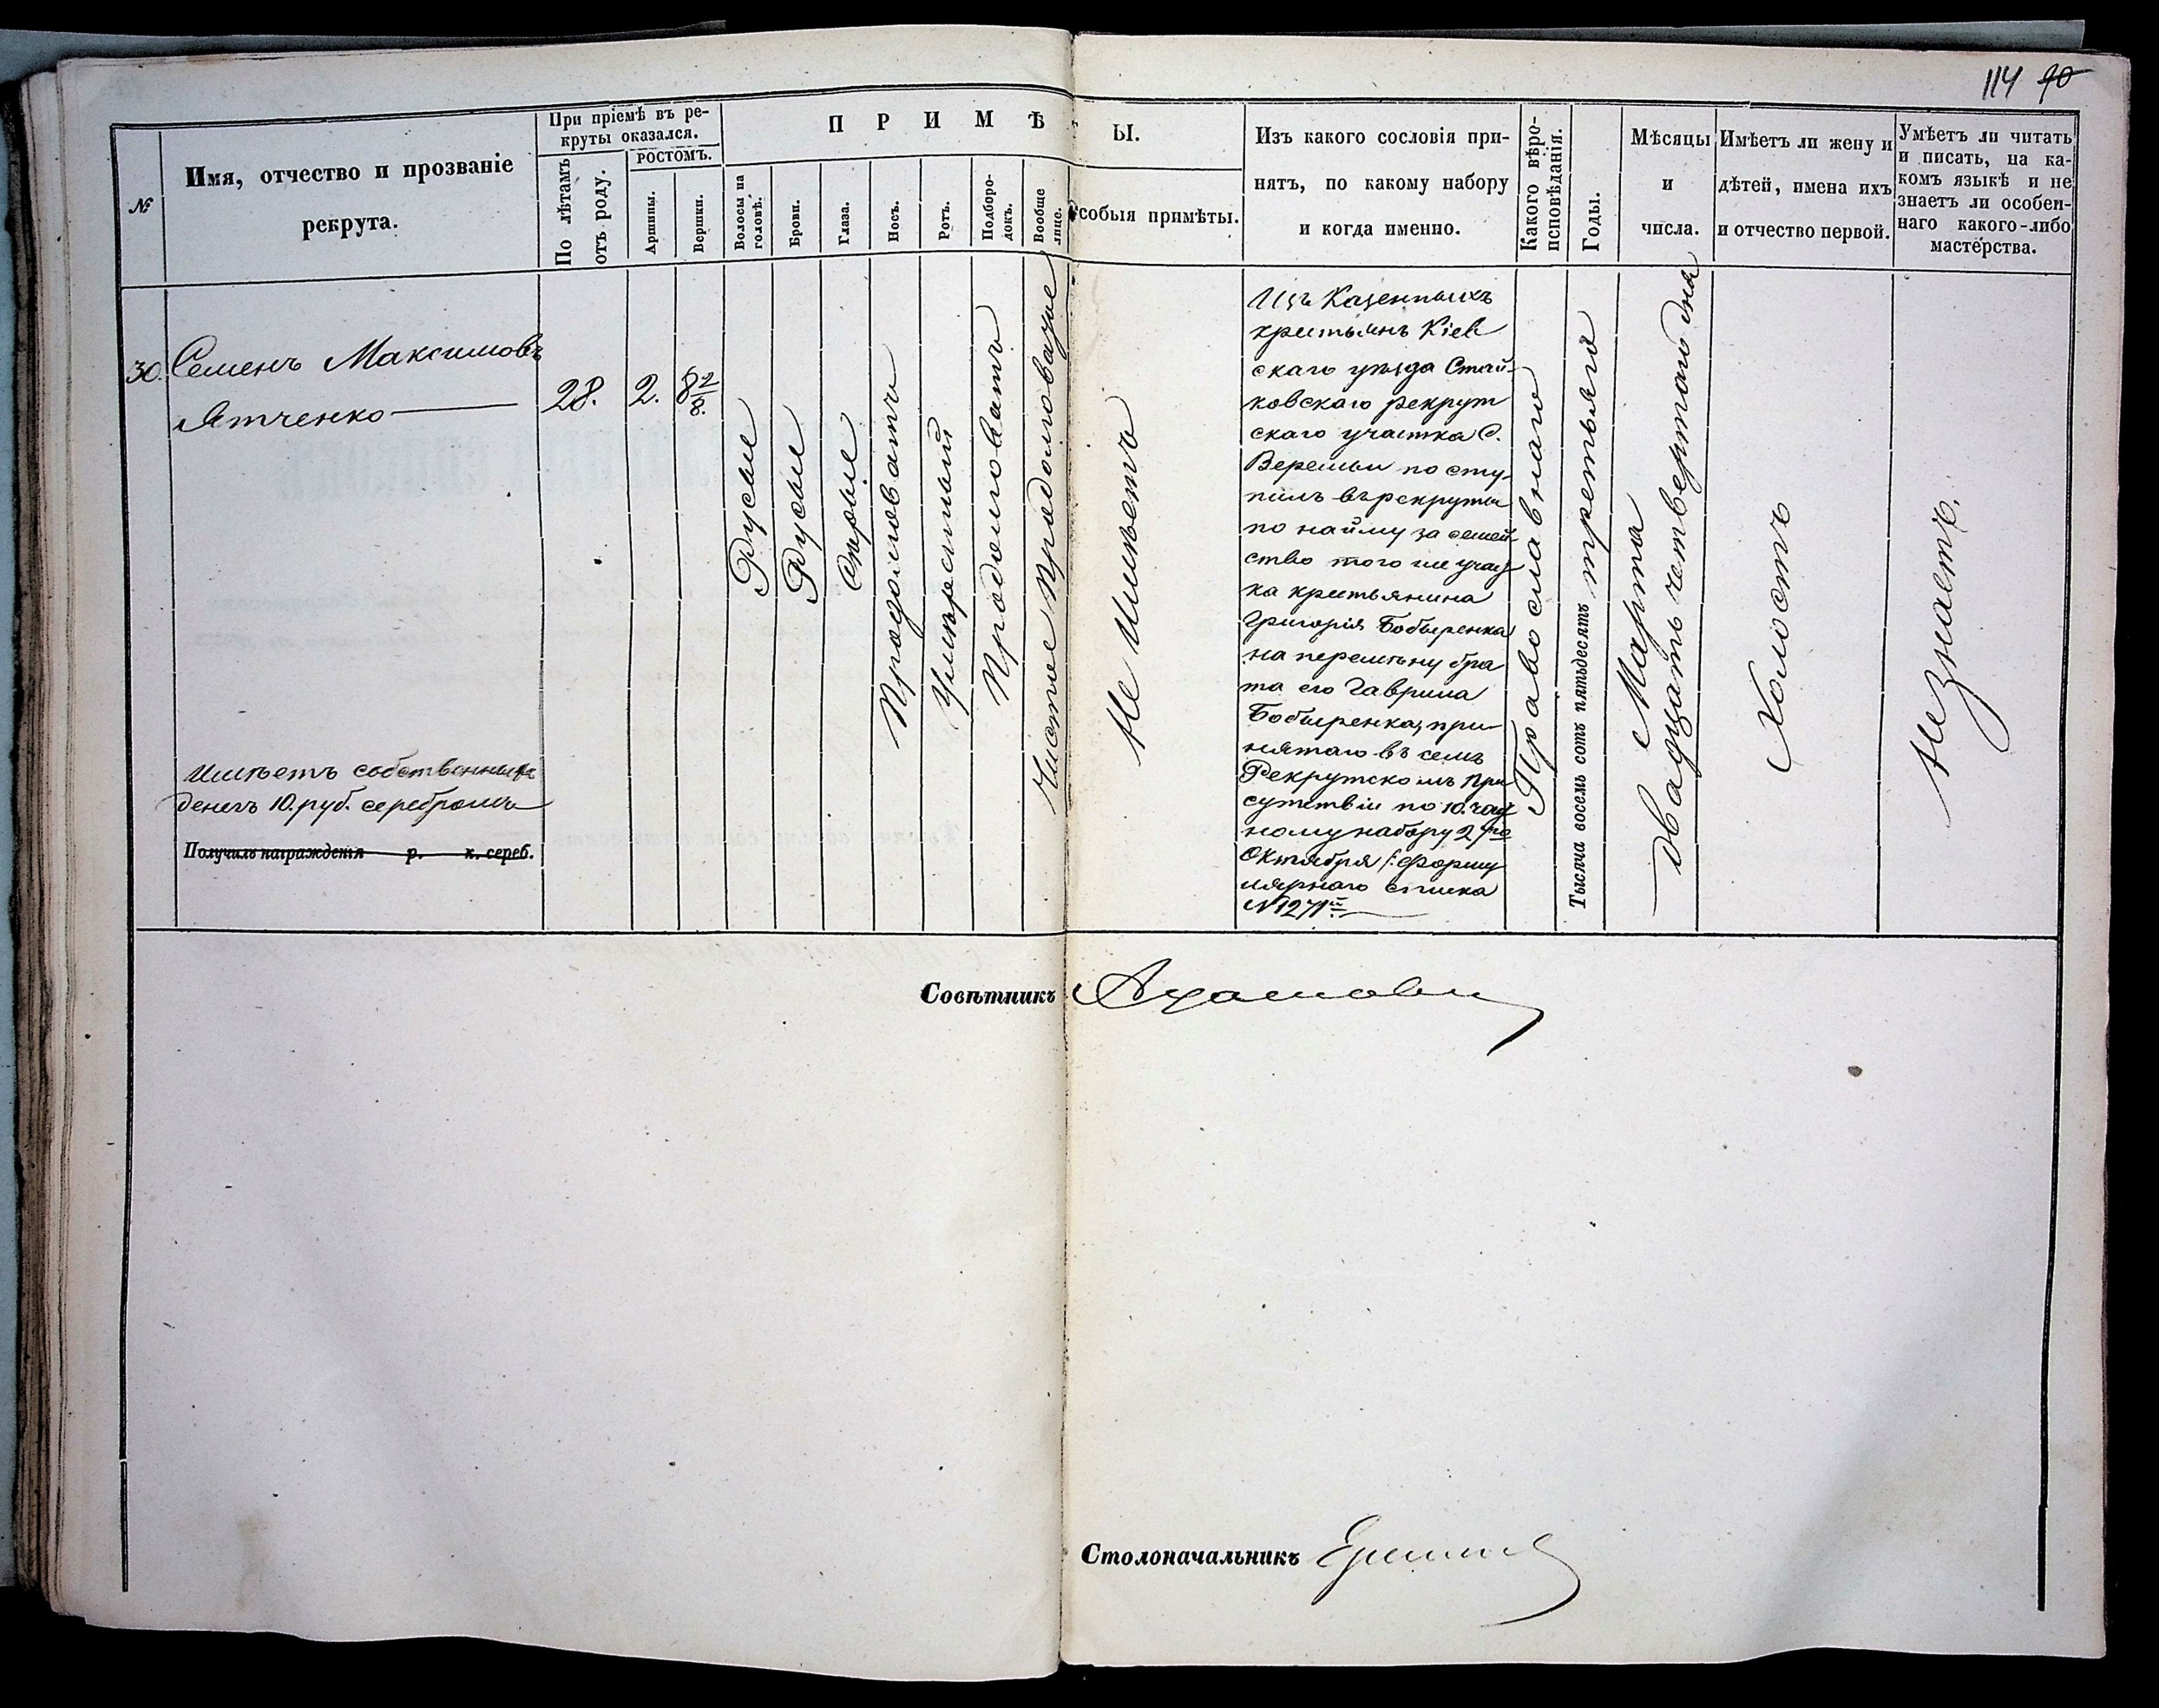 114 90
№
Имя, отчество и прозваніе
рекрута.
При пріемѣ въ ре-
круты оказался.
По лѣтамъ
отъ роду.
РОСТОМЪ.
Аршины.
Вершки.
ПРИМѢ
Ы.
Волосы на
головѣ.
Брови.
Глаза.
Носъ.
Ротъ.
Подборо-
докъ.
Вообще
лице.
собыя примѣты.
Изъ какого сословія при-
нятъ, по какому набору
и когда именно.
Какого вѣро-
исповѣданія.
Годы.
Мѣсяцы
и
числа.
Имѣетъ ли жену и
дѣтей, имена ихъ
и отчество первой.
Умѣетъ ли читать
и писать, на ка-
комъ языкѣ и не
знаетъ ли особен-
наго какого-либо
мастерства.
30.
Семенъ Максимовъ
Ятченко
Имѣетъ собственныхъ
денегъ 10. руб. серебромъ
Получилъ награжденія р. к. сереб.
28.
2.
8 2/8.
Русые
Русые
Сѣрые
Продолговатъ
Умѣренный
Продолговатъ
Чистое продолговатое
Не Имѣетъ
Изъ Казенныхъ
крестьянъ Кіев
скаго уѣзда Стай-
ковскаго рекрут
скаго участка С.
Веремьи по сту-
пилъ въ рекруты
по найму за семей
ство того же участ
ка крестьянина
Григорія Бобыренка
на перемѣну бра
та его Гаврила
Бобыренка, при-
нятаго въ семъ
Рекрутскомъ При
сутствіи по 10. част
ному набору 27го
Октября /: формy
лярнаго списка
№ 1271й
Православнаго
Тысяча восемь сотъ пятьдесятъ третьяго
Марта
двадцать четвертаго дня
Холостъ
Не знаетъ.
Совѣтникъ
Столоначальникъ